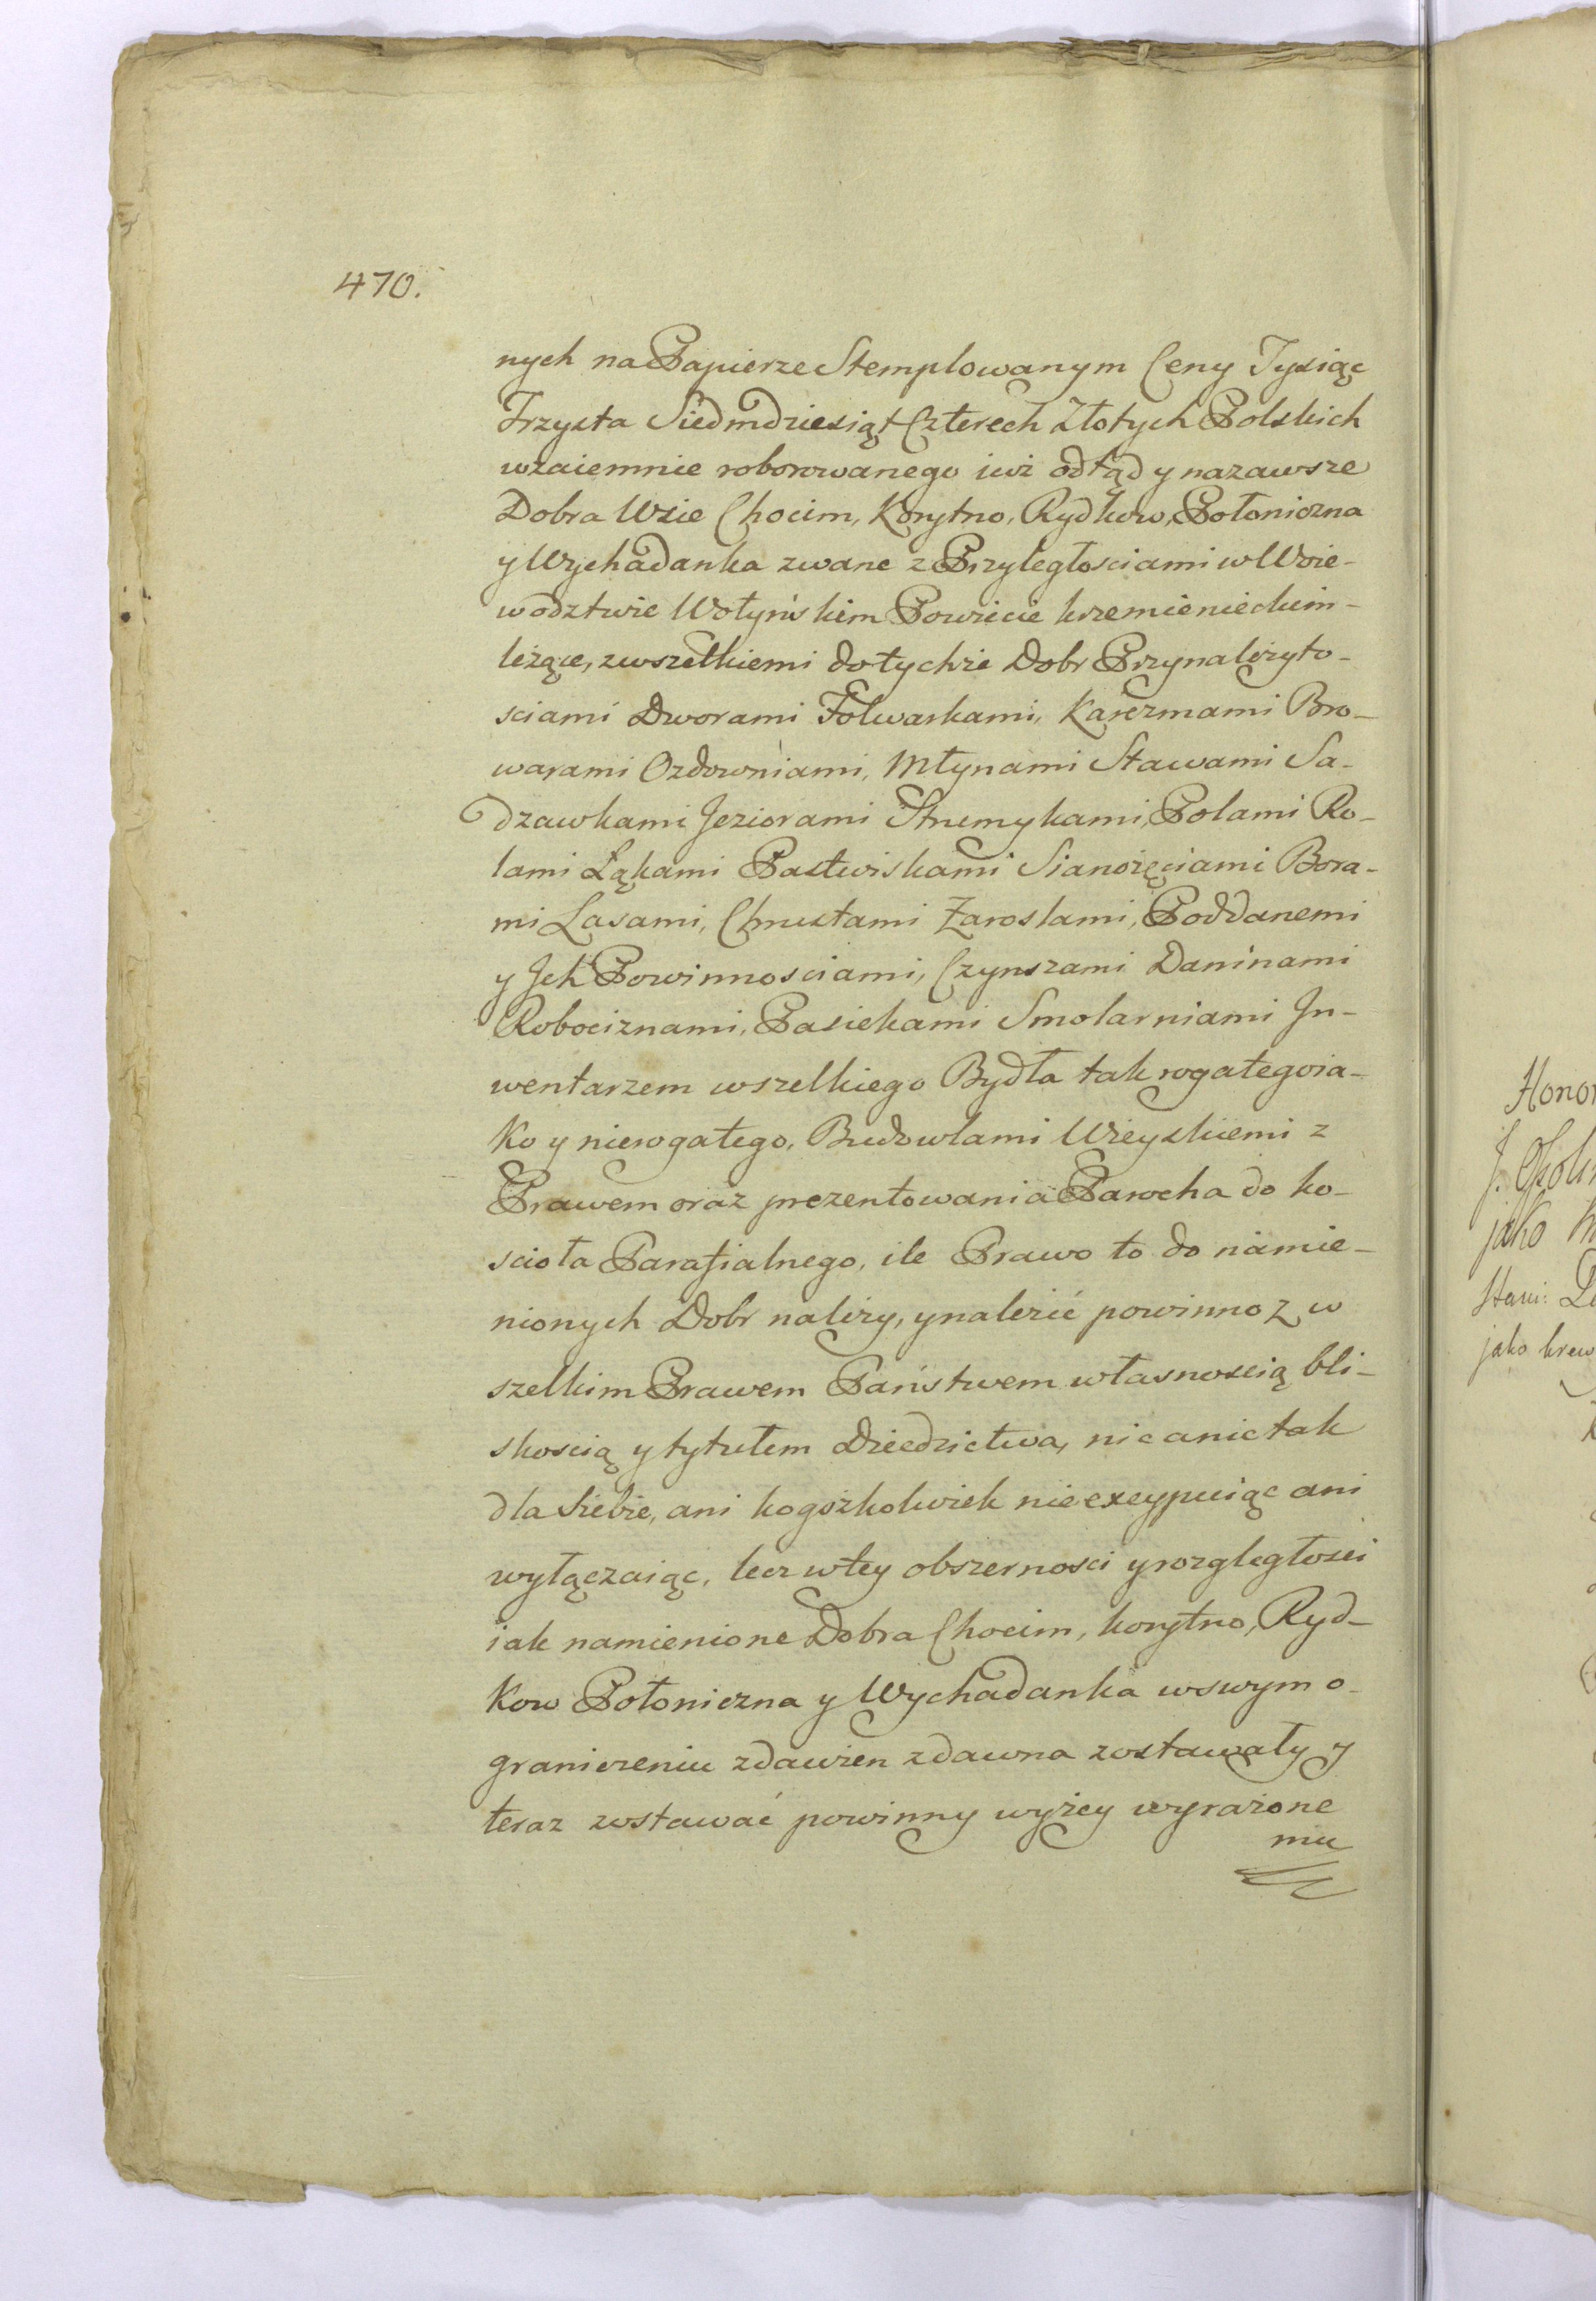 470.
nych na Papierze Stemplowanym Ceny Tysiąc
Trzysta Siedmdziesiąt Czterech Złotych Polskich
wzaiemnie roborowanego iuż odtąd y nazawsze
Dobra Wsie Chocim, Korytno, Rydkow, Połoniczna
y Wychadanka zwane z Przyległosciami w Woie-
wodztwie Wołyńskiem Powiecie krzemienieckim-
leżące, zwszelkiemi do tychże Dobr Przynależyto-
sciami Dworami Folwarkami, Karczmami Bro-
warami Ozdowniami, Młynami Stawami Sa-
dzawkami Jeziorami Strumykami, Polami Ro-
lami Łąkami Pastwiskami Sianożęciami Bora-
mi Lasami, Chrustami Zaroslami, Poddanemi
y Jch Powinnosciami, Czynszami Daninami
Robociznami, Pasiekami Smolarniami Jn-
wentarzem wszelkiego Bydła tak rogategoia-
ko y nierogatego, Budowlami Wieyskiemi z
Prawem oraz prezentowania Parocha do ko-
scioła Parafialnego, ile Prawo to do namie-
nionych Dobr należy, ynależić powinno z w
szelkim Prawem Państwem własnoscią bli-
skoscią y tytułem Dziedzictwa, nic anic tak
dla siebie, ani kogożkolwiek nieexcypuiąc ani
wyłączaiąc, lecz wtey obszernosci yrozgległosci
iak namienione Dobra Chocim, korytno, Ryd-
kow Połoniczna y Wychadanka wswym o-
graniczeniu zdawien zdawna zostawały y
teraz zostawać powinny wyżey wyrażone
mu
Honor
jako
Stani:
jako krew